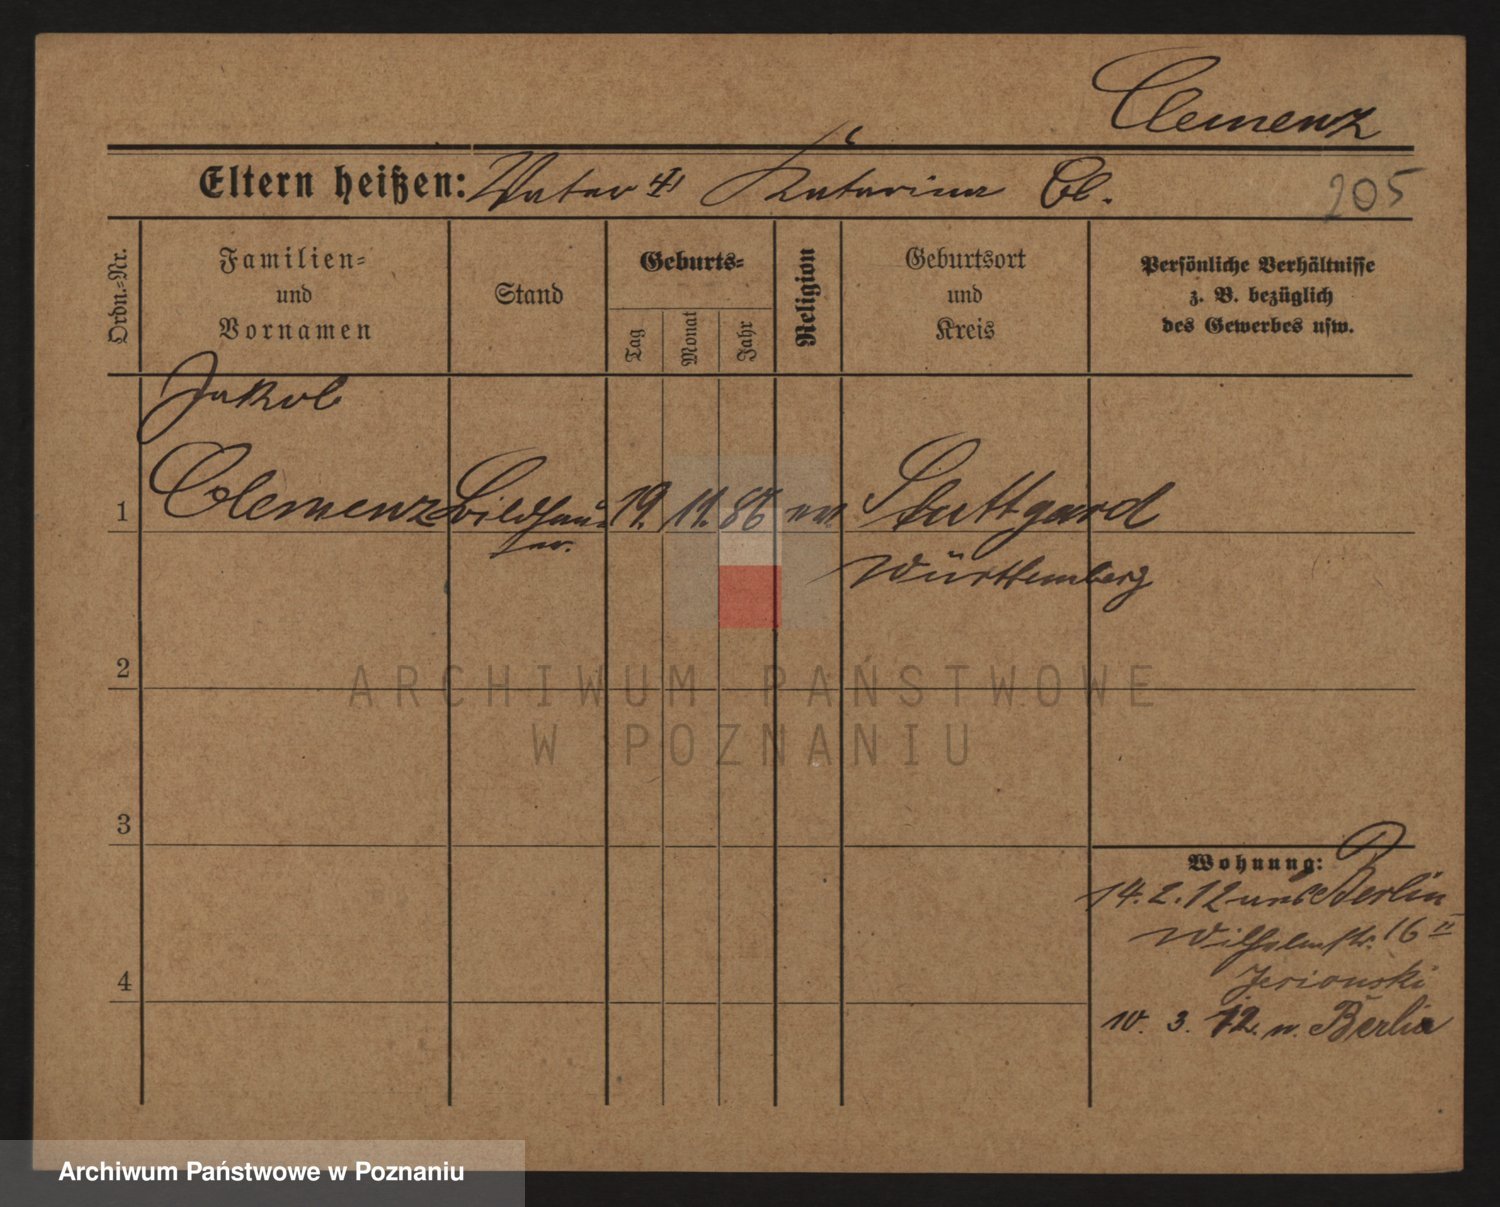 Clemenz
Eltern heißen: Vater † Katarina Cl.
205
Ordn.-Nr.
Familien-
und
Vornamen
Stand
Geburts-
Tag
Monat
Jahr
Religion
Geburtsort
und
Kreis
Persönliche Verhältnisse
z. B. bezüglich
des Gewerbes usw.
Jakob
1 Clemenz Bildhau- 19. 11. 86 Stuttgard
er.
Württemberg
2
ARCHIWUM PAŃSTWOWE
W POZNANIU
3
Wohnung:
14. 2. 12 aus Berlin
Wilhelmstr. 16 II
4
10. 3. 12. n. Berlin
Archiwum Państwowe w Poznaniu